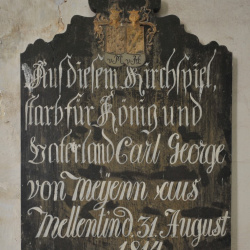 Aus diesem Kirchspiel,
starb für König und
Vaterland Carl George
von Meÿenn aus
Mellentin d. 31. August
1814